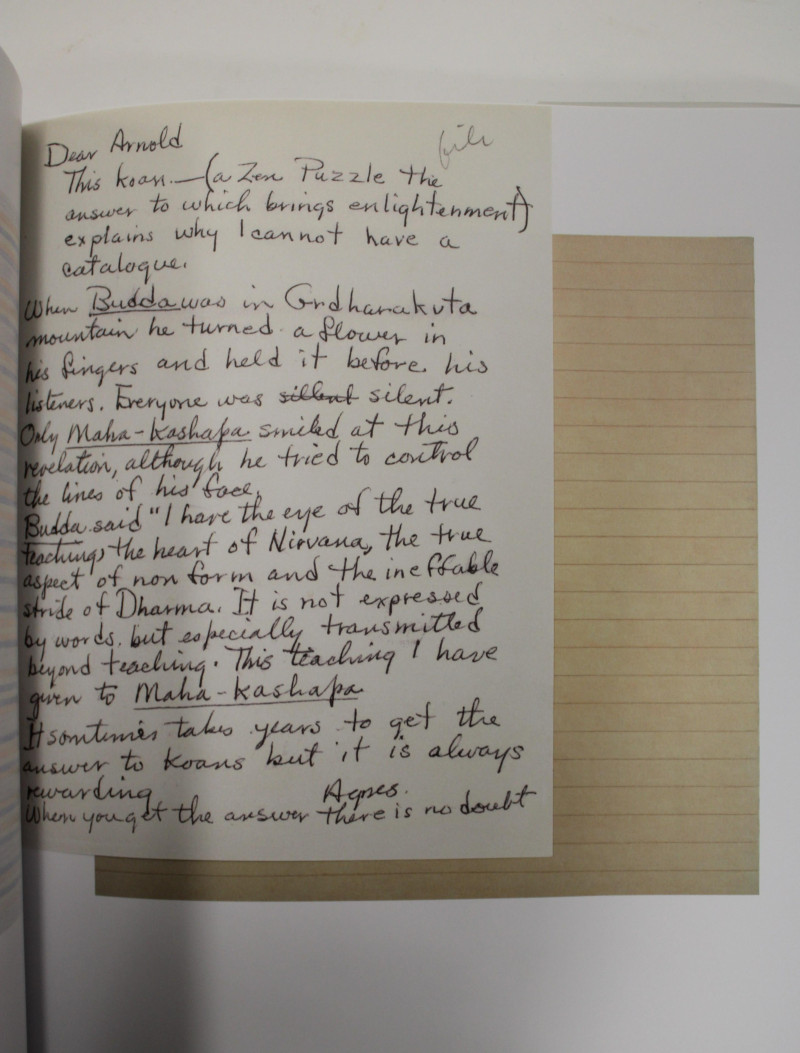 file
Dear Arnold
This koan.—(a Zen Puzzle the
answer to which brings enlightenment)
explains why I cannot have a
catalogue.
When Budda was in Grdharakuta
mountain he turned a flower in
his fingers and held it before his
listeners. Everyone was sillent silent.
Only Maha-Kashapa smiled at this
revelation, although he tried to control
the lines of his face.
Budda said "I have the eye of the true
teaching, the heart of Nirvana, the true
aspect of non form and the ineffable
stride of Dharma. It is not expressed
by words. but especially transmitted
beyond teaching. This teaching I have
given to Maha-Kashapa
It sometimes takes years to get the
answer to koans but it is always
rewarding
Agnes.
When you get the answer there is no doubt